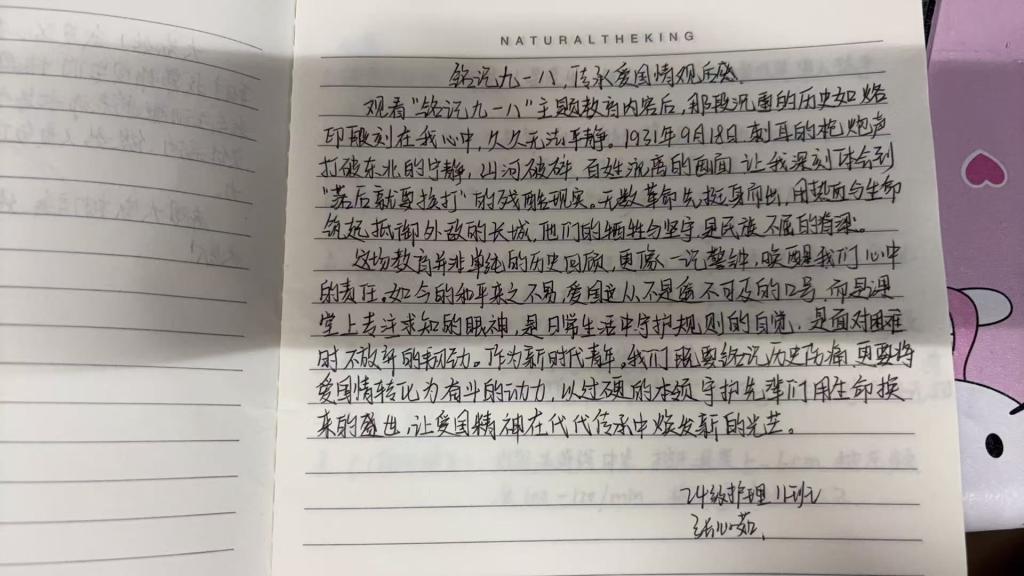 NATURALTHEKING
铭记九一八,传承爱国情观后感
观看“铭记九一八”主题教育内容后,那段沉重的历史如烙
印般刻在我心中,久久无法平静。1931年9月18日,刺耳的枪炮声
打破东北的宁静,山河破碎,百姓流离的画面,让我深刻体会到
“落后就要挨打”的残酷现实。无数革命先挺身而出,用热血与生命
筑起抵御外敌的长城,他们的牺牲与坚守,是民族不屈的脊梁。
这场教育并非单纯的历史回顾,更像一记警钟,唤醒我们心中
的责任。如今的和平来之不易,爱国从不是遥不可及的口号,而是课
堂上专注求知的眼神,是日常生活中守护规则的自觉,是面对困难
时不放弃的韧劲。作为新时代青年,我们既要铭记历史伤痛,更要将
爱国情转化为奋斗的动力,以过硬的本领守护先辈们用生命换
来的盛世,让爱国精神在代代传承中焕发新的光芒。
24级护理11班
张心茹